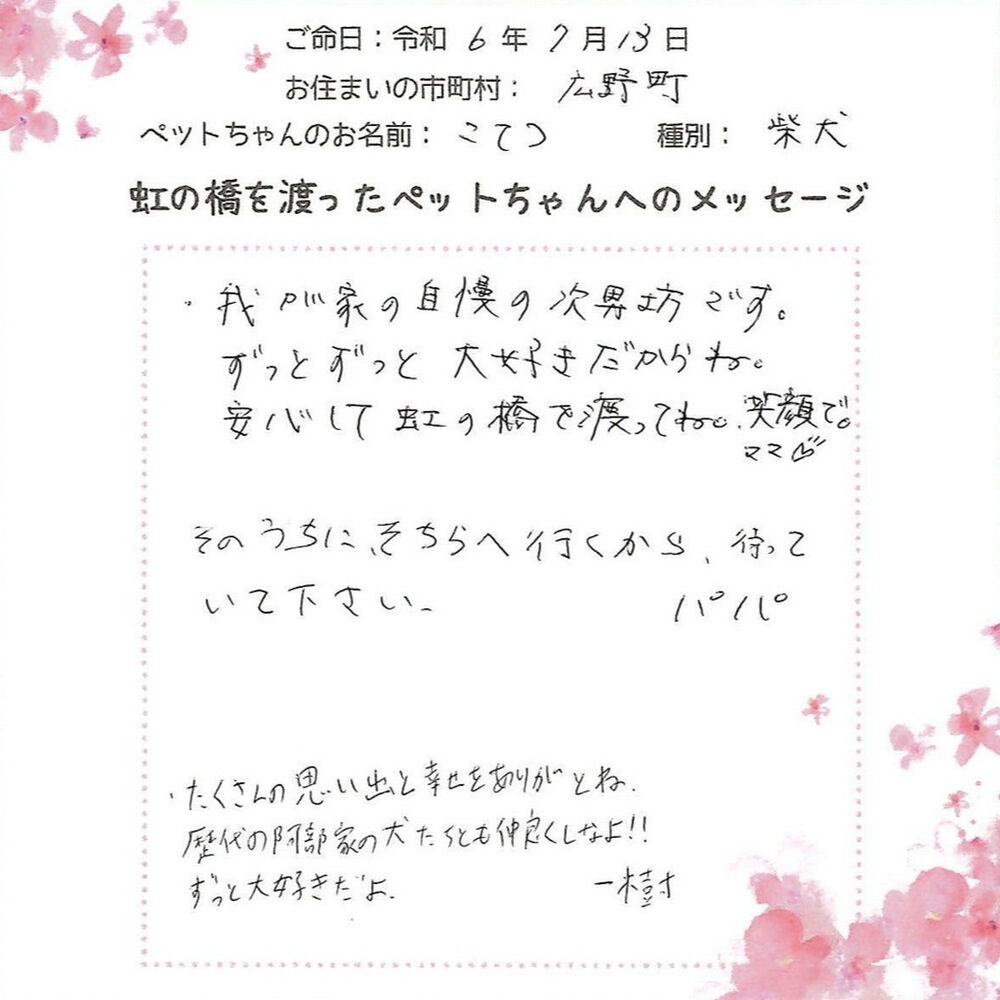 ご命日：令和 6 年 7 月 13 日
お住まいの市町村： 広野町
ペットちゃんのお名前： こてつ 種別： 柴犬
虹の橋を渡ったペットちゃんへのメッセージ
・我が家の自慢の次男坊です。
ずっとずっと大好きだからね。
安心して虹の橋を渡ってね。笑顔で。
ママ♡
そのうちに、そちらへ行くから、待って
いて下さい。 パパ
・たくさんの思い出と幸せをありがとね。
歴代の阿部家の犬たちとも仲良くしなよ!!
ずっと大好きだよ. 一樹